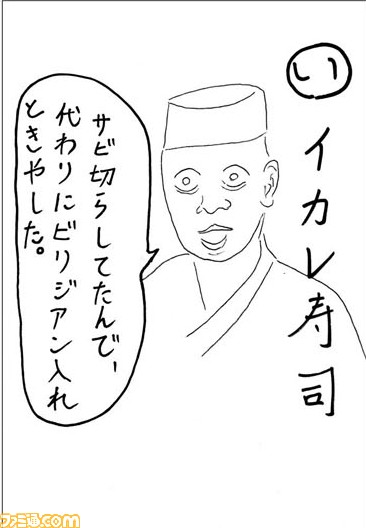 い
イカレ寿司
サビ切らしてたんで、
代わりにビリジアン入れ
ときやした。
ファミ通.com